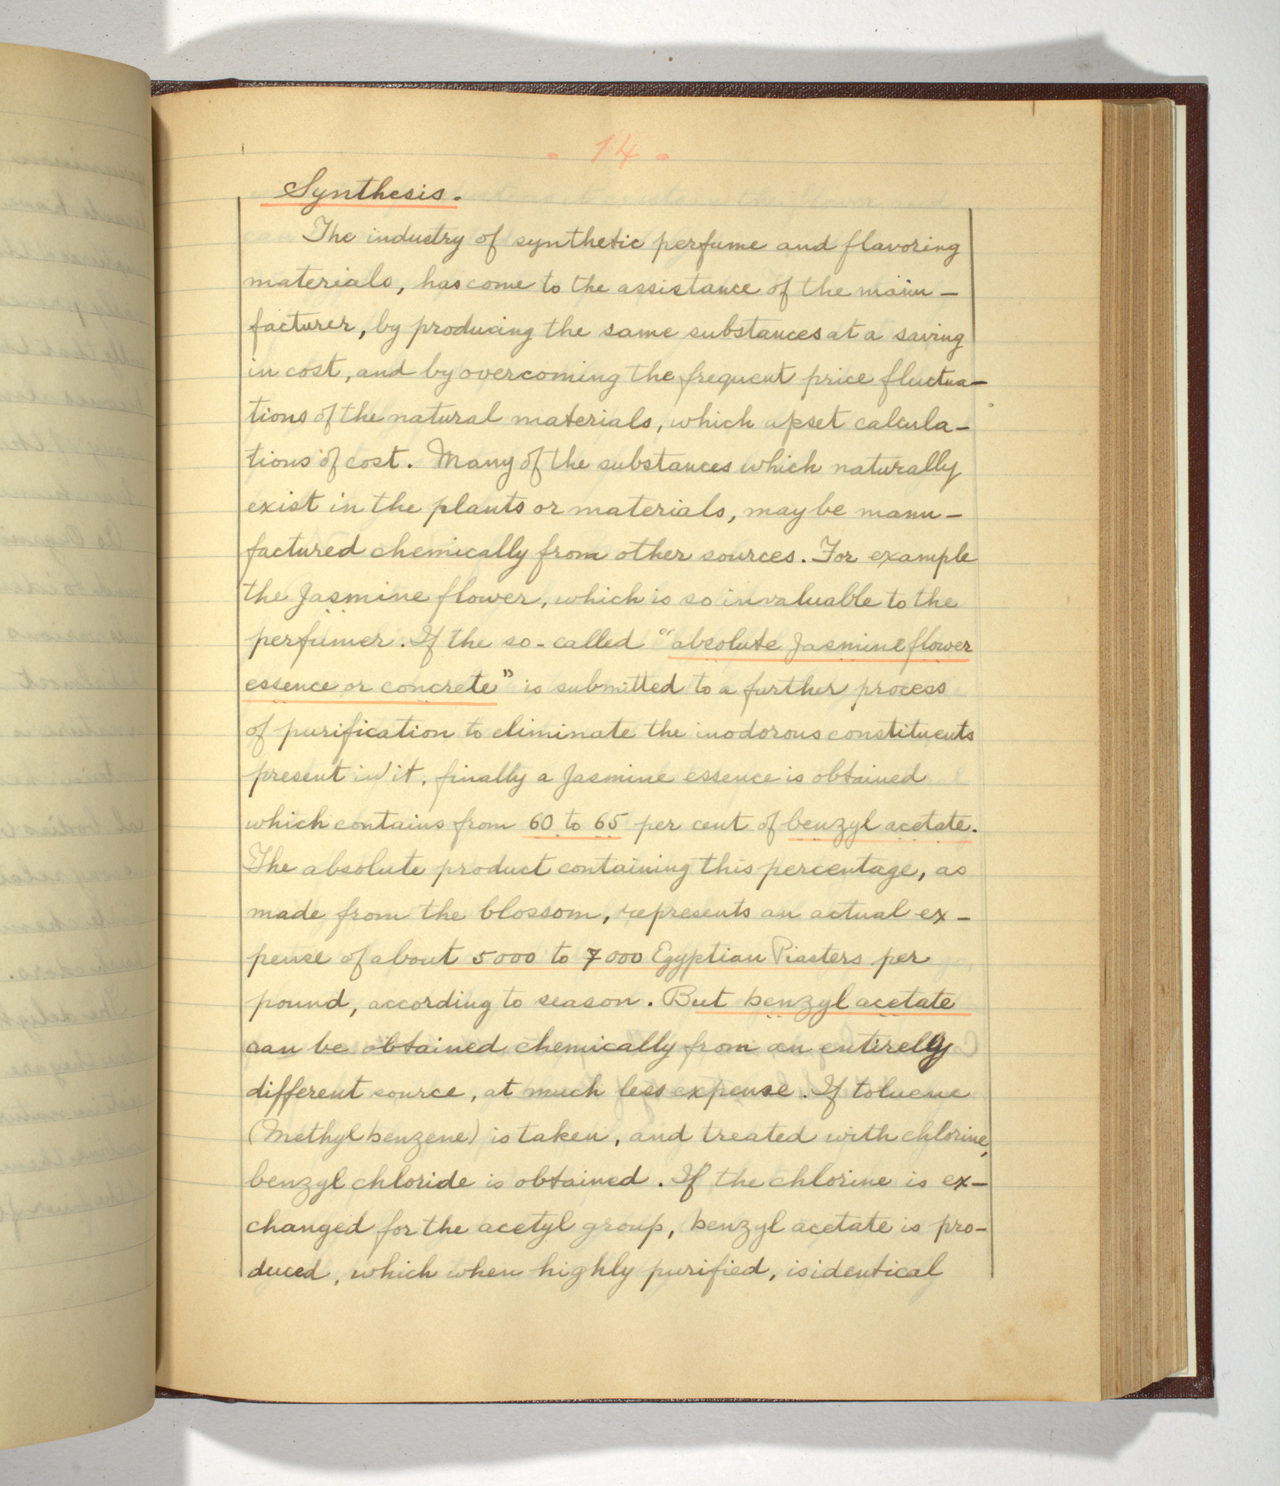 - 14 -
Synthesis.
The industry of synthetic perfume and flavoring
materials, has come to the assistance of the manu-
facturer, by producing the same substances at a saving
in cost, and by overcoming the frequent price fluctua-
tions of the natural materials, which upset calcula-
tions of cost. Many of the substances which naturally
exist in the plants or materials, may be manu-
factured chemically from other sources. For example
the Jasmine flower, which is so invaluable to the
perfumer. If the so-called "absolute Jasmine flower
essence or concrete" is submitted to a further process
of purification to eliminate the inodorous constituents
present in it, finally a Jasmine essence is obtained
which contains from 60 to 65 per cent of benzyl acetate.
The absolute product containing this percentage, as
made from the blossom, represents an actual ex-
pense of about 5000 to 7000 Egyptian Piasters per
pound, according to season. But benzyl acetate
can be obtained chemically from an entirely
different source, at much less expense. If toluene
(Methyl benzene) is taken, and treated with chlorine,
benzyl chloride is obtained. If the chlorine is ex-
changed for the acetyl group, benzyl acetate is pro-
duced, which when highly purified, is identical